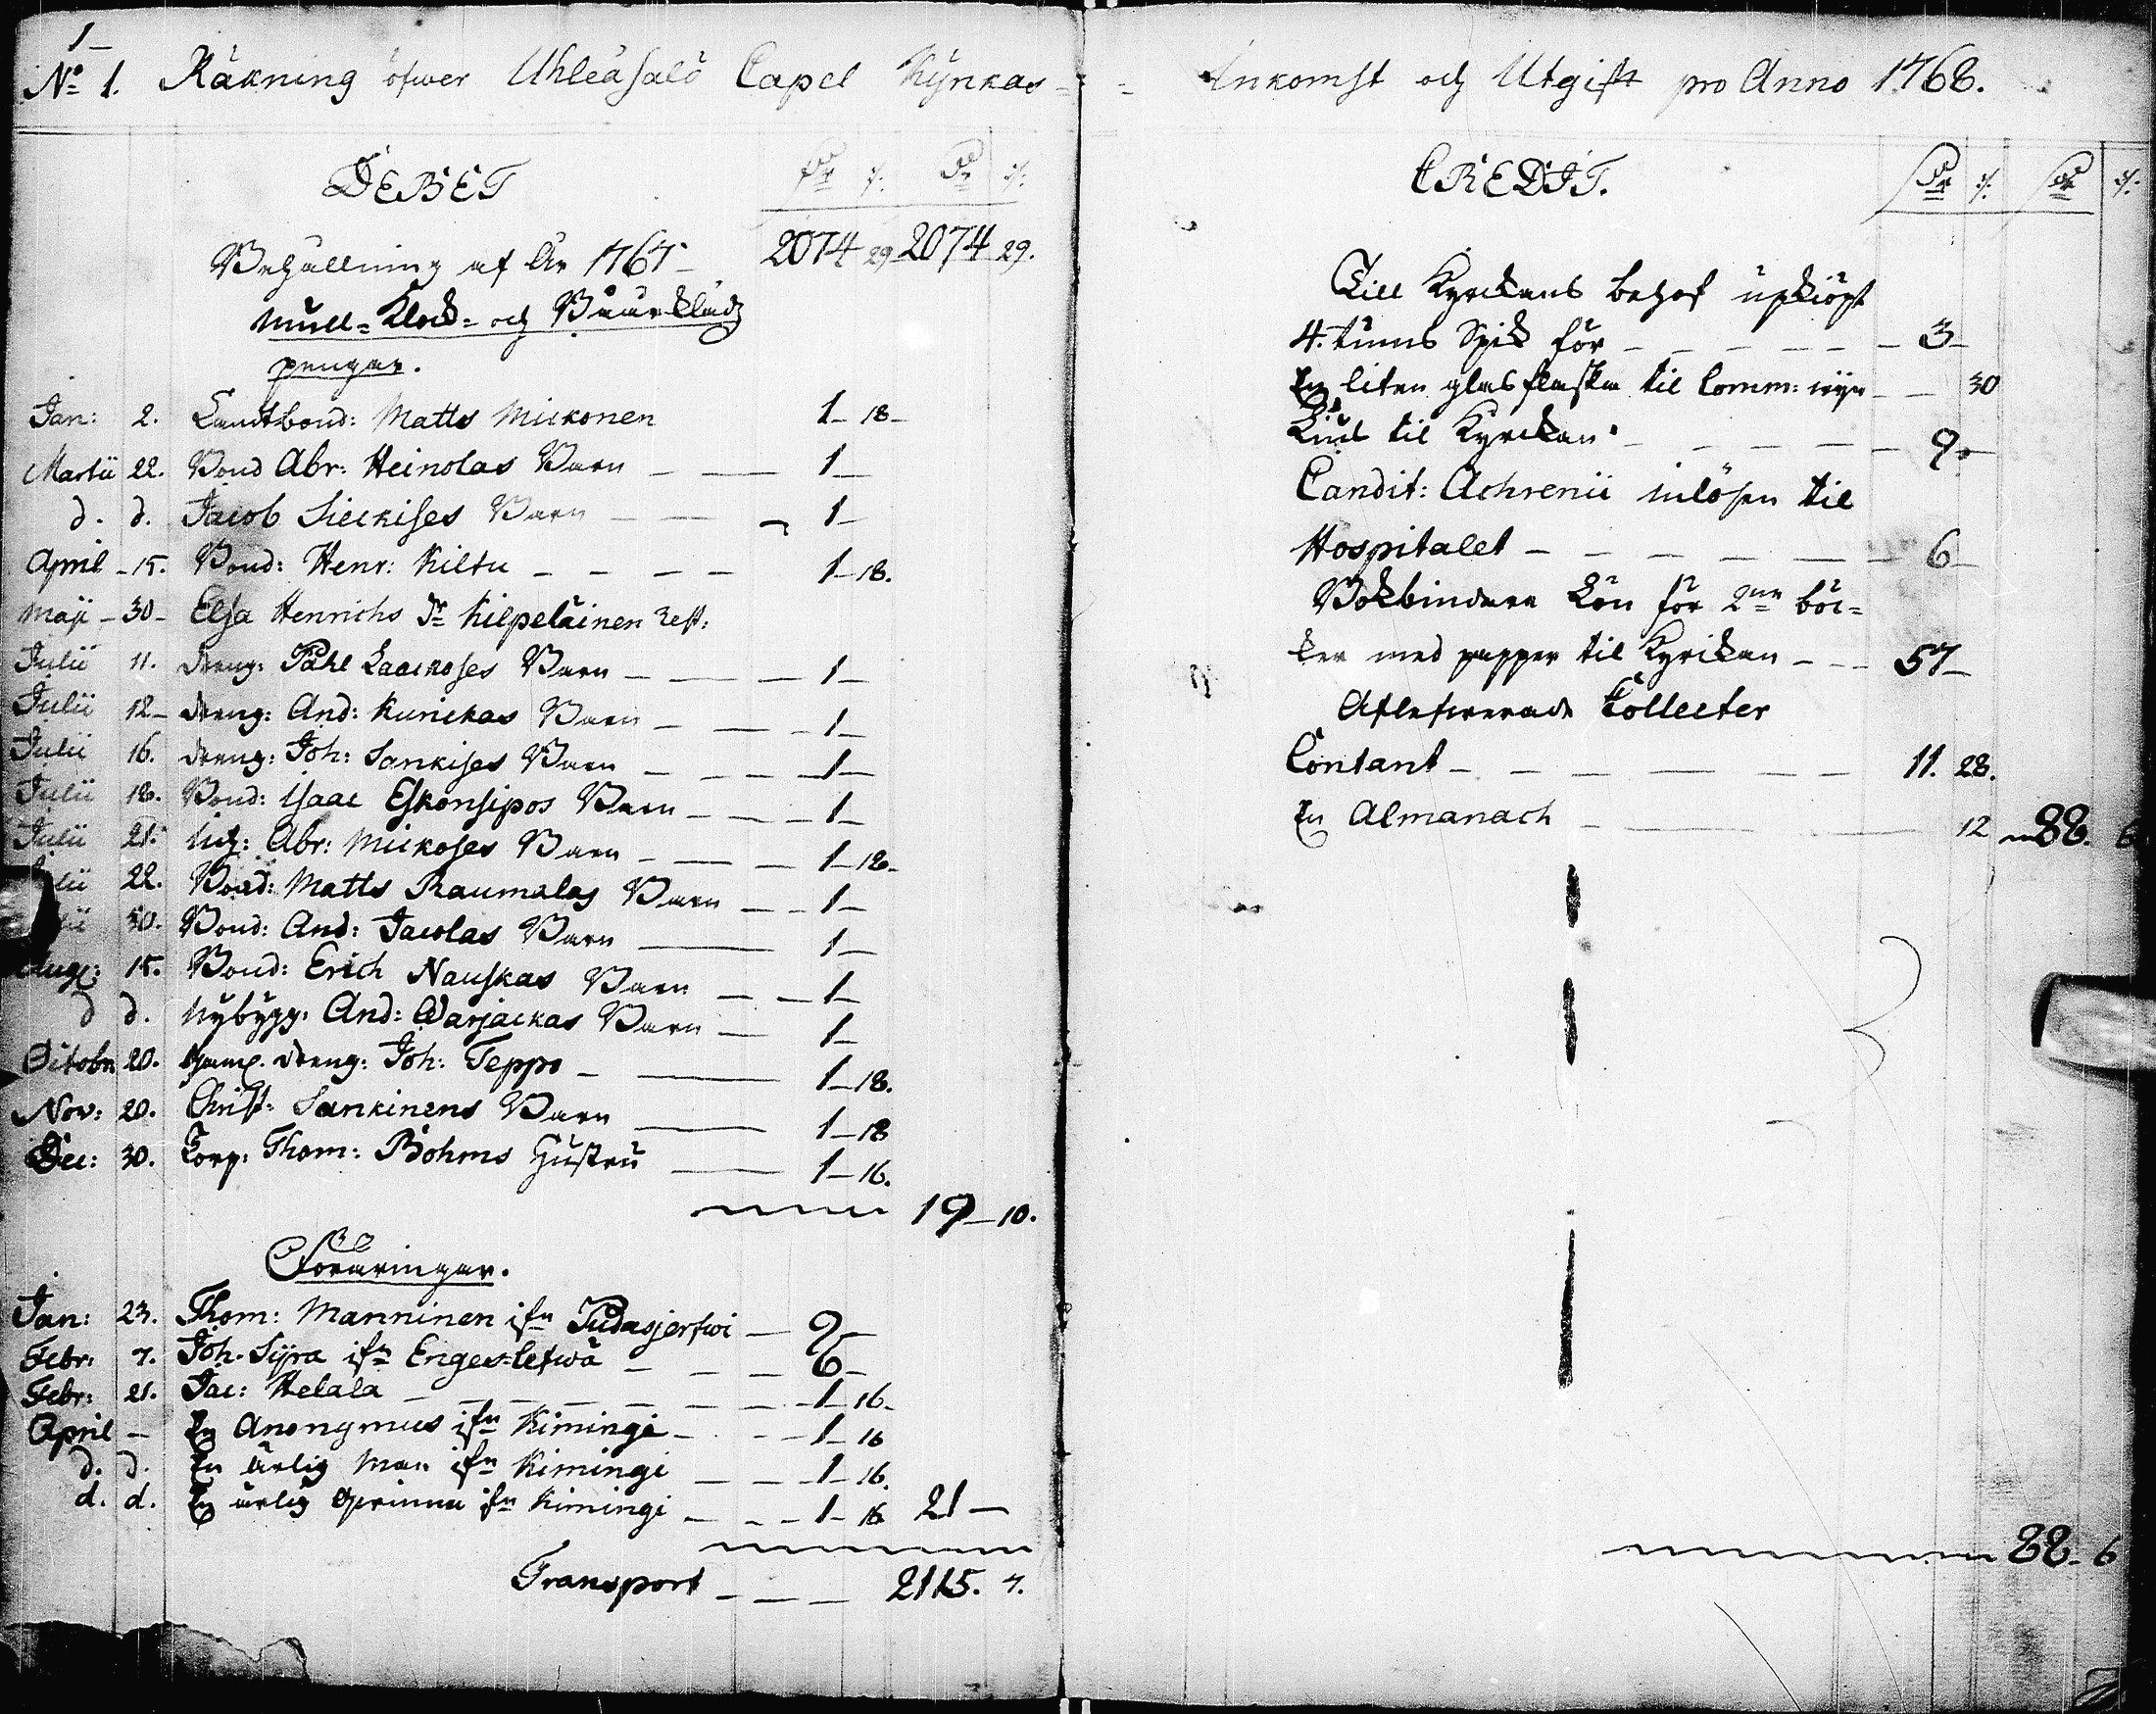 1
No 1. Räkning öfwer Uhleåsalo Capel Kÿrkas =
DEBET
Behållning af År 1767 — 2074 29 2074 29.
Mull= Klock= och Båårkläds
pengar.
Jan: 2. Landtbond: Matts Mickonen 1— 18—
Martii 22. Bond Abr: Heinolas Barn — — 1—
d. d. Jacob Sieckises Barn — — 1—
April — 15. Bond: Henr: Kiltu — — — — 1— 18.
Maji — 30— Elsa Henrichs Dr Kilpeläinen rest:
Julii 11. Dreng: Påhl Laackoses Barn — — — 1—
Julii 12— Dreng: And: Kurickas Barn — — — 1—
Julii 16. Dreng: Joh: Sankises Barn — — — 1—
Julii 18. Bond: Isaac Eskonsipos Barn — — — 1—
Julii 21. Abr: Mickoses Barn — — — 1— 18—
22. Bond: Matts Raumalas Barn — — 1—
30. Bond: And: Jacolas Barn — 1—
Aug: 15. Bond: Erich Nauskas Barn — — 1—
d d. Nÿbÿgg: And: Warjackas Barn — 1—
Octobr 20. Gaml. Dreng: Joh: Teppo — — 1— 18.
Nov: 20. Christ: Sankinens Barn — 1— 18
Dec: 30. Corp: Thom: Böhms Hustru — 1— 16.
19— 10.
Föräringar.
Jan: 23. Thom: Manninen ifn Pudasjerfwi — 9—
Febr: 7. Joh. Sÿra ifn Enges=lefwä — — — 6—
Febr: 21. Jac: Helala — — — — — 1 16—
April — En Anonymus ifn Kimingi — — — 1— 16
d. d. En ärlig Man ifn Kimingi — — 1— 16.
d. d. En ärlig Qvinna ifn Kimingi — — — 1— 16 21—
Transport — — — 2115. 7.
Inkomst och Utgift pro Anno 1768.
CREDIT.
Till Kyrckans behof upkiöpt
4. tums Spik för — — — — — — 3—
En liten glasflaska til Comm: wijn — — 30
Liuus til Kyrckan — — — — — 9—
Candit: Achrenii inlösen til
Hospitalet — — — — — — 6—
Bokbindare Lön för 2ne böc=
ker med papper til Kyrckan — — 57—
Aflefwererade Collecter
Contant — — — — — — 11. 28.
En Almanach — — — 12 88. 6
88— 6